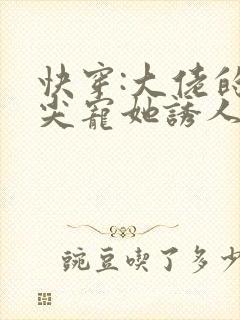 快穿:大佬的
尖寵她誘人
豌豆喫了多少